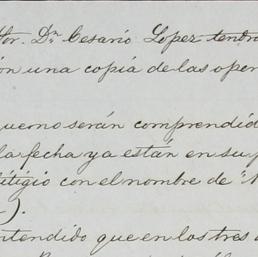 tor. Dn Cesario Lopez tendra
ón una copia de las oper
que no serán comprendid
la fecha ya están en su p
litigio con el nombre de "
).
ntendido que en los tres